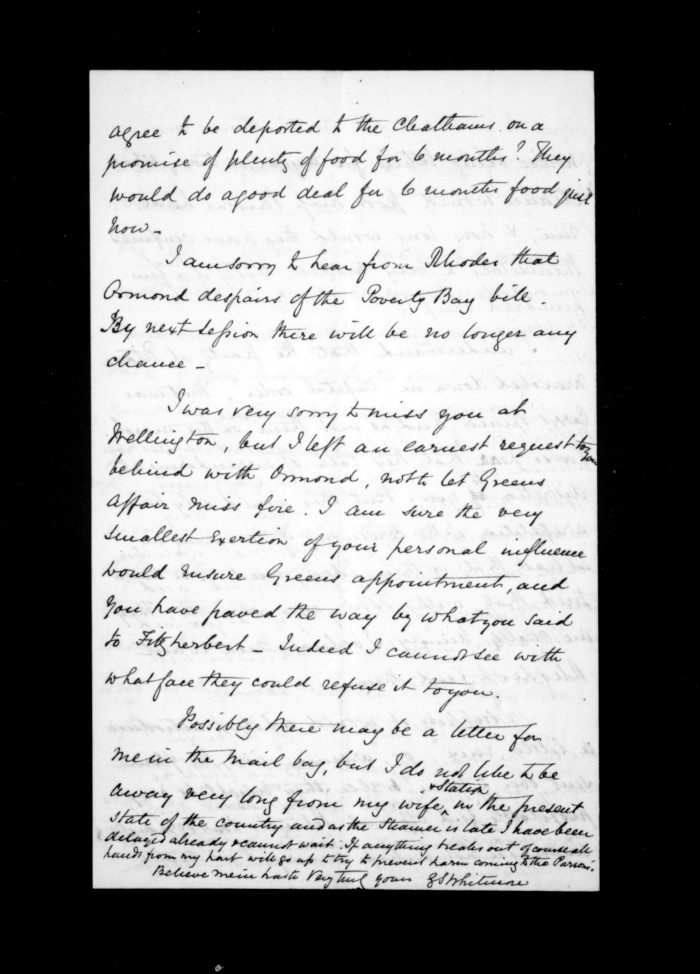 agree to be deported to the Chathams on a
promise of plenty of food for 6 months? They
would do a good deal for 6 months food just
now -
I am sorry to hear from Rhodes that
Ormond despairs of the Poverty Bay bill.
By next Session there will be no longer any
chance -
I was very sorry to miss you at
Wellington, but I left an earnest request to you
behind with Ormond, not to let Greens
affair miss fire. I am sure the very
smallest exertion of your personal influence
would ensure Greens appointment, and
you have paved the way by what you said
to Fitzherbert - Indeed I cannot see with
what face they could refuse it to you.
Possibly there may be a letter for
me in the mail bag, but I do not like to be
away very long from my wife & Station in the present
state of the country and as the Steamer is late I have been
delayed already & cannot wait. If anything breaks out of course all
hands from my part will go up to try to prevent harm coming to the Parsons.
Believe me in haste Very truly yours G S Whitmore